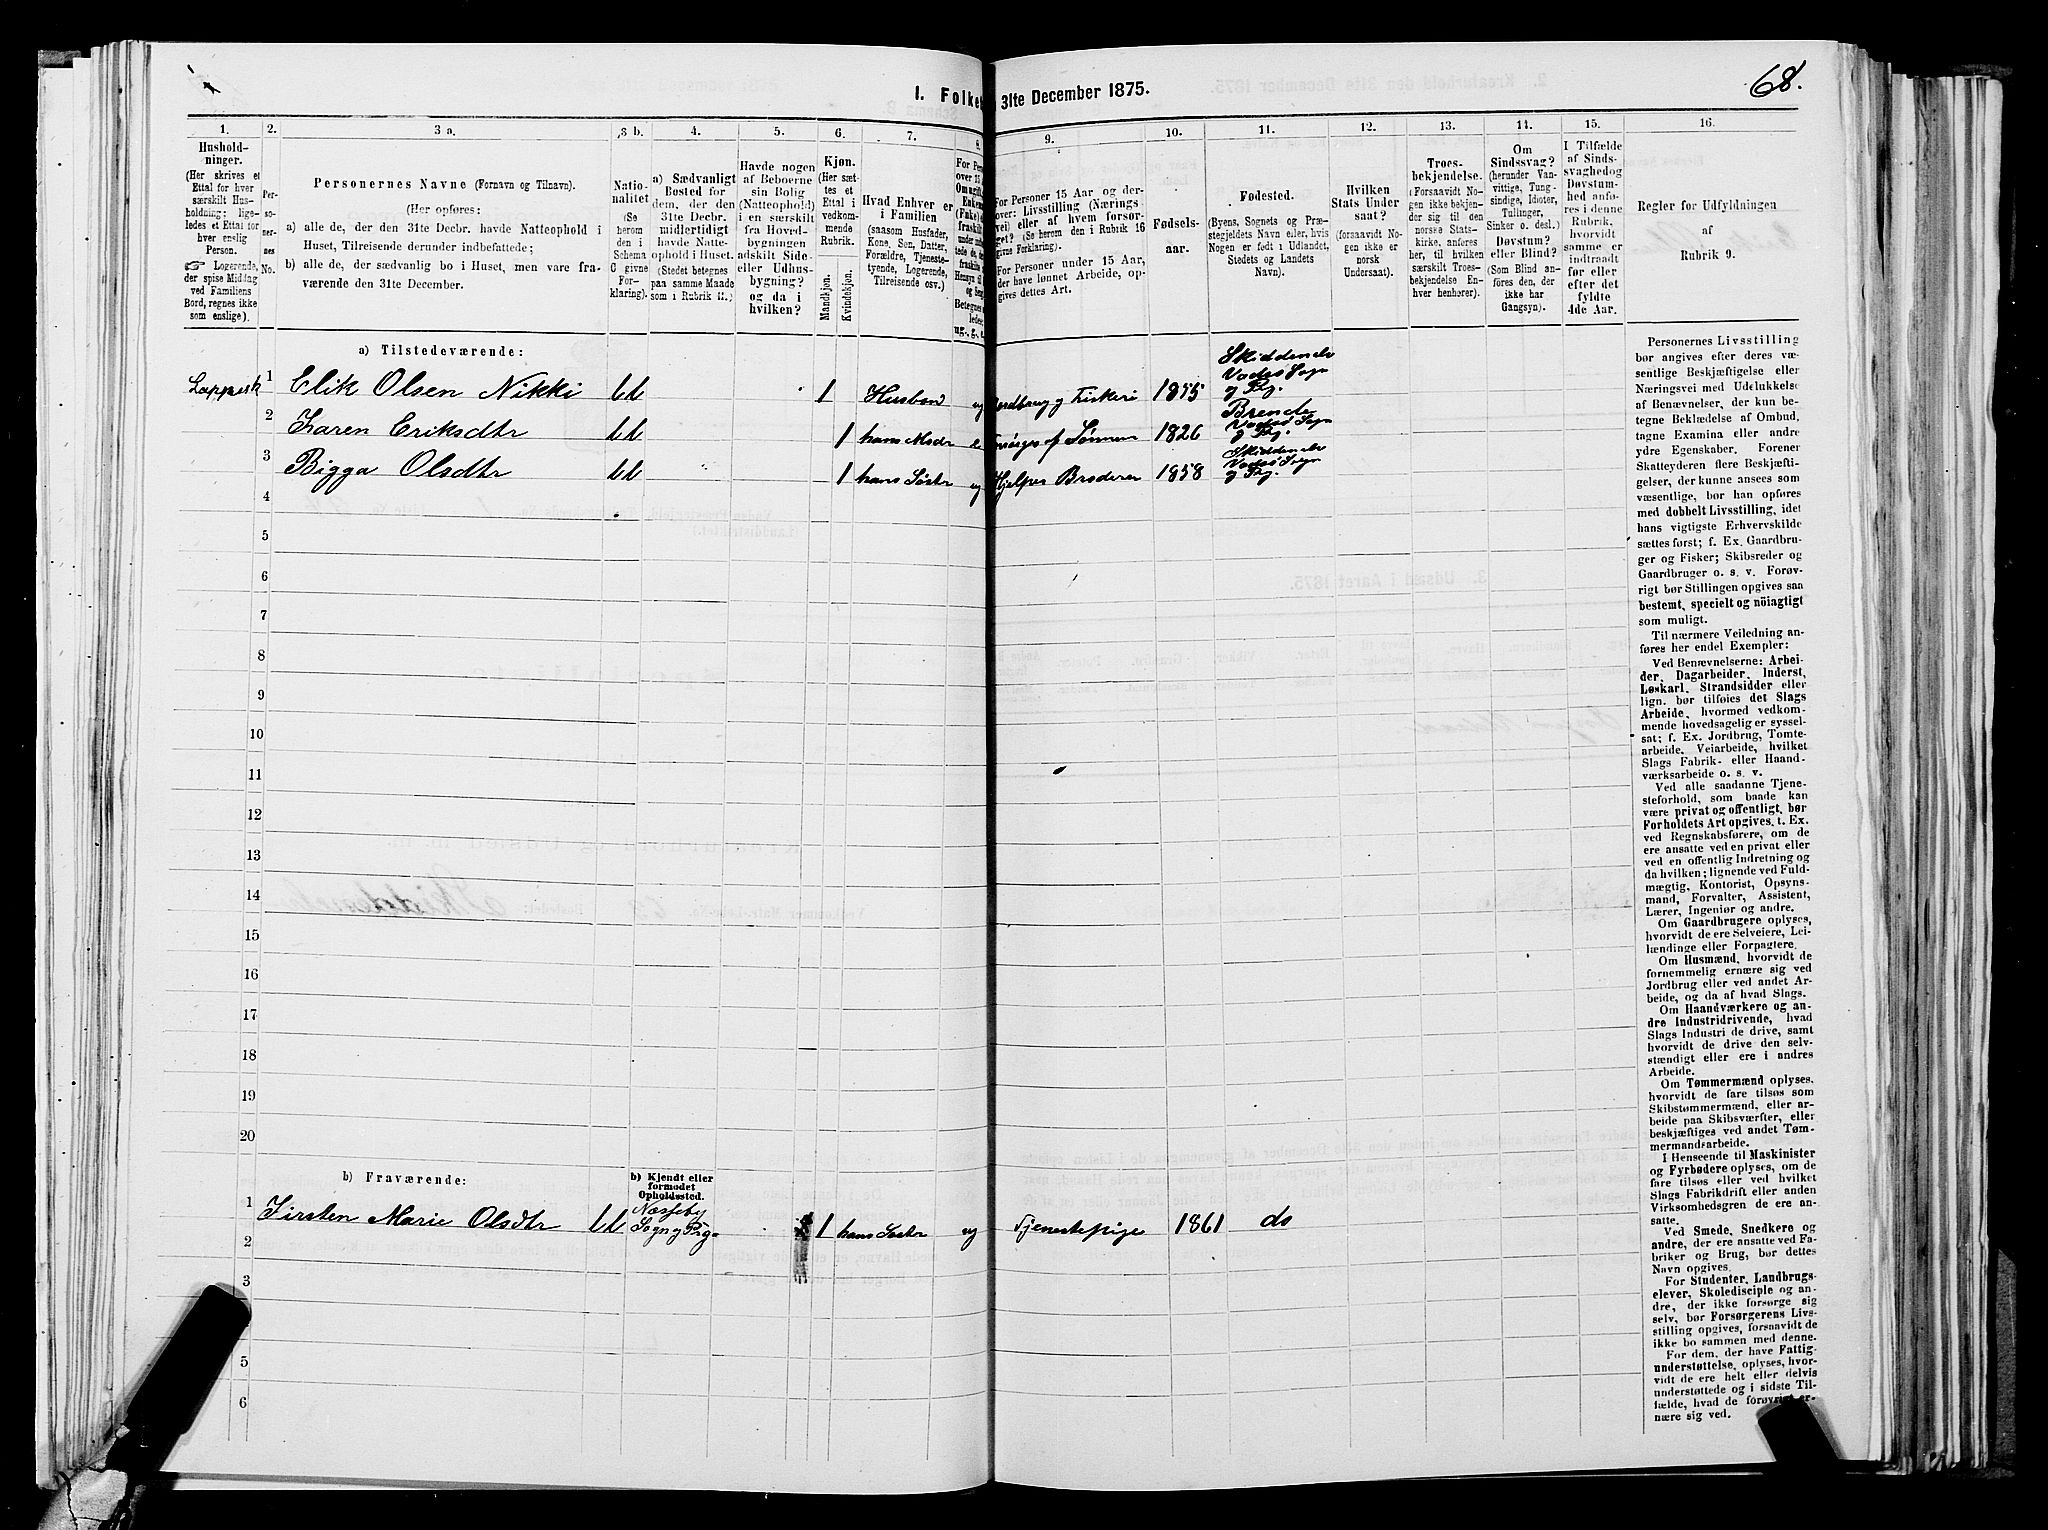 68.
I. Folket 31te December 1875.
1. 2. 3 a. 3 b. 4. 5. 6. 7. 8. 9. 10. 11. 12. 13. 14. 15. 16.
Hushold-
ninger.
(Her skrives et
Ettal for hver
særskilt Hus-
holdning; lige-
ledes et Ettal for
hver enslig
Person.
☞ Logerende,
der spise Middag
ved Familiens
Bord, regnes ikke
som enslige).
Per-
so-
ner-
nes
No.
Personernes Navne (Fornavn og Tilnavn).
(Her opføres:
a) alle de, der den 31te Decbr. havde Natteophold i
Huset, Tilreisende derunder indbefattede;
b) alle de, der sædvanlig bo i Huset, men vare fra-
værende den 31te December.
Natio-
nalitet
(Se
herom
den i
Schema
C givne
For-
klaring).
a) Sædvanligt
Bosted for
dem, der den
31te Decbr.
midlertidigt
havde Natte-
ophold i Huset.
(Stedet betegnes
paa samme Maade
som i Rubrik 11.)
Havde nogen
af Beboerne
sin Bolig
(Natteophold)
i en særskilt
fra Hoved-
bygningen
adskilt Side-
eller Udhus-
bygning?
og da i
hvilken?
Kjøn.
(Her sæt-
tes et
Ettal i
vedkom-
mende
Rubrik.
Mandkjøn.
Kvindekjøn.
Hvad Enhver er
i Familien
(saasom Husfader,
Kone, Søn, Datter,
Forældre, Tjeneste-
tyende, Logerende,
Tilreisende osv.)
For Personer 15 Aar og der-
over: Livsstilling (Nærings-
vei) eller af hvem forsør-
get? (Se herom den i Rubrik 16
givne Forklaring).
For Personer under 15 Aar,
der have lønnet Arbeide, op-
gives dettes Art.
Fødsels-
aar.
Fødested.
(Byens, Sognets og Præ-
stegjeldets Navn eller, hvis
Nogen er født i Udlandet,
Stedets og Landets
Navn).
Hvilken
Stats Under
saat?
(forsaavidt No-
gen ikke er
norsk
Undersaat).
Troes-
bekjendelse.
(Forsaavidt No-
gen ikke bekjen-
der sig til den
norske Stats-
kirke, anføres
her, til hvilken
særskilt Troes-
bekjendelse En-
hver henhører).
Om
Sindssvag?
(herunder Van-
vittige, Tung-
sindige, Idioter,
Tullinger,
Sinker o. desl.)
Døvstum?
eller Blind?
(Som Blind an-
føres den, der
ikke har
Gangsyn).
I Tilfælde
af Sinds-
svaghed og
Døvstum-
hed anfø-
res i denne
Rubrik,
hvorvidt
samme er
indtraadt
før eller
efter det
fyldte
4de Aar.
Regler for Udfyldningen
af
Rubrik 9.
a) Tilstedeværende:
Lappisk 1 Elik Olsen Nikki bb 1 Husbond ug Jordbrug g Fiskeri 1855 Skiddenelv Vadsø Sogn og Pg.
2 Karen Eriksdtr bb 1 hans Modr e Forsørges af Sønnen 1826 Brende Vadsø Sogn og Pg.
3 Bigga Olsdtr bb 1 hans Søstr ug Hjelper Broderen 1858 Skiddenelv Vadsø Sogn og Pg.
4
5
6
7
8
9
10
11
12
13
14
15
16
17
18
19
20
b) Fraværende:
b) Kjendt eller
formodet
Opholdssted.
1 Kirsten Marie Olsdtr bb Næsseby Sogn g Pg. 1 hans Søstr ug Tjenestepige 1861 do
2
3
5
6
Personernes Livsstilling
bør angives efter deres væ-
sentlige Beskjæftigelse eller
Næringsvei med Udelukkelse
af Benævnelser, der kun be-
tegne Beklædelse af Ombud,
tagne Examina eller andre
ydre Egenskaber. Forener
Skatteyderen flere Beskjæfti-
gelser, der kunne ansees som
væsentlige, bør han opføres
med dobbelt Livsstilling, idet
hans vigtigste Erhvervskilde
sættes først; f. Ex. Gaardbru-
ger og Fisker; Skibsreder og
Gaardbruger o. s. v. Forøv-
rigt bør Stillingen opgives saa
bestemt, specielt og nöiagtigt
som muligt.
Til nærmere Veiledning an-
føres her endel Exempler:
Ved Benævnelserne: Arbei-
der, Dagarbeider, Inderst,
Løskarl, Strandsidder eller
lign. bør tilføies det Slags
Arbeide, hvormed vedkom-
mende hovedsagelig er syssel-
sat; f. Ex. Jordbrug, Tomte-
arbeide, Veiarbeide, hvilket
Slags Fabrik- eller Haand-
værksarbeide o. s. v.
Ved alle saadanne Tjene-
steforhold, som baade kan
være privat og offentligt, bør
Forholdets Art opgives, t. Ex.
ved Regnskabsførere, om de
ere ansatte ved en privat eller
ved en offentlig Indretning og
da hvilken; lignende ved Fuld-
mægtig, Kontorist, Opsyns-
mand, Forvalter, Assistent,
Lærer, Ingeniør og andre.
Om Gaardbrugere oplyses,
hvorvidt de ere Selveiere, Lei-
lændinge eller Forpagtere.
Om Husmænd, hvorvidt de
fornemmelig ernære sig ved
Jordbrug eller ved andet Ar-
beide, og da af hvad Slags.
Om Haandværkere og an-
dre Industridrivende, hvad
Slags Industri de drive, samt
hvorvidt de drive den selv-
stændigt eller ere i andres
Arbeide.
Om Tømmermænd oplyses,
hvorvidt de fare tilsøs som
Skibstømmermænd, eller ar-
beide paa Skibsværfter, eller
beskjæftiges ved andet Tøm-
mermandsarbeide.
I Henseende til Maskinister
og Fyrbødere oplyses, om de
fare tilsøs eller ved hvilket
Slags Fabrikdrift eller anden
Virksomhedsgren de ere an-
satte.
Ved Smede, Snedkere og
andre, der ere ansatte ved Fa-
briker og Brug, bør dettes
Navn opgives.
For Studenter, Landbrugs-
elever, Skoledisciple og an-
dre, der ikke forsørge sig
selv, bør Forsørgerens Livs-
stilling opgives, forsaavidt de
ikke bo sammen med denne.
For dem, der have Fattig-
understøttelse, oplyses, hvor-
vidt de ere helt eller delvis
understøttede og i sidste Til-
fælde, hvad de forøvrigt er-
nære sig ved.